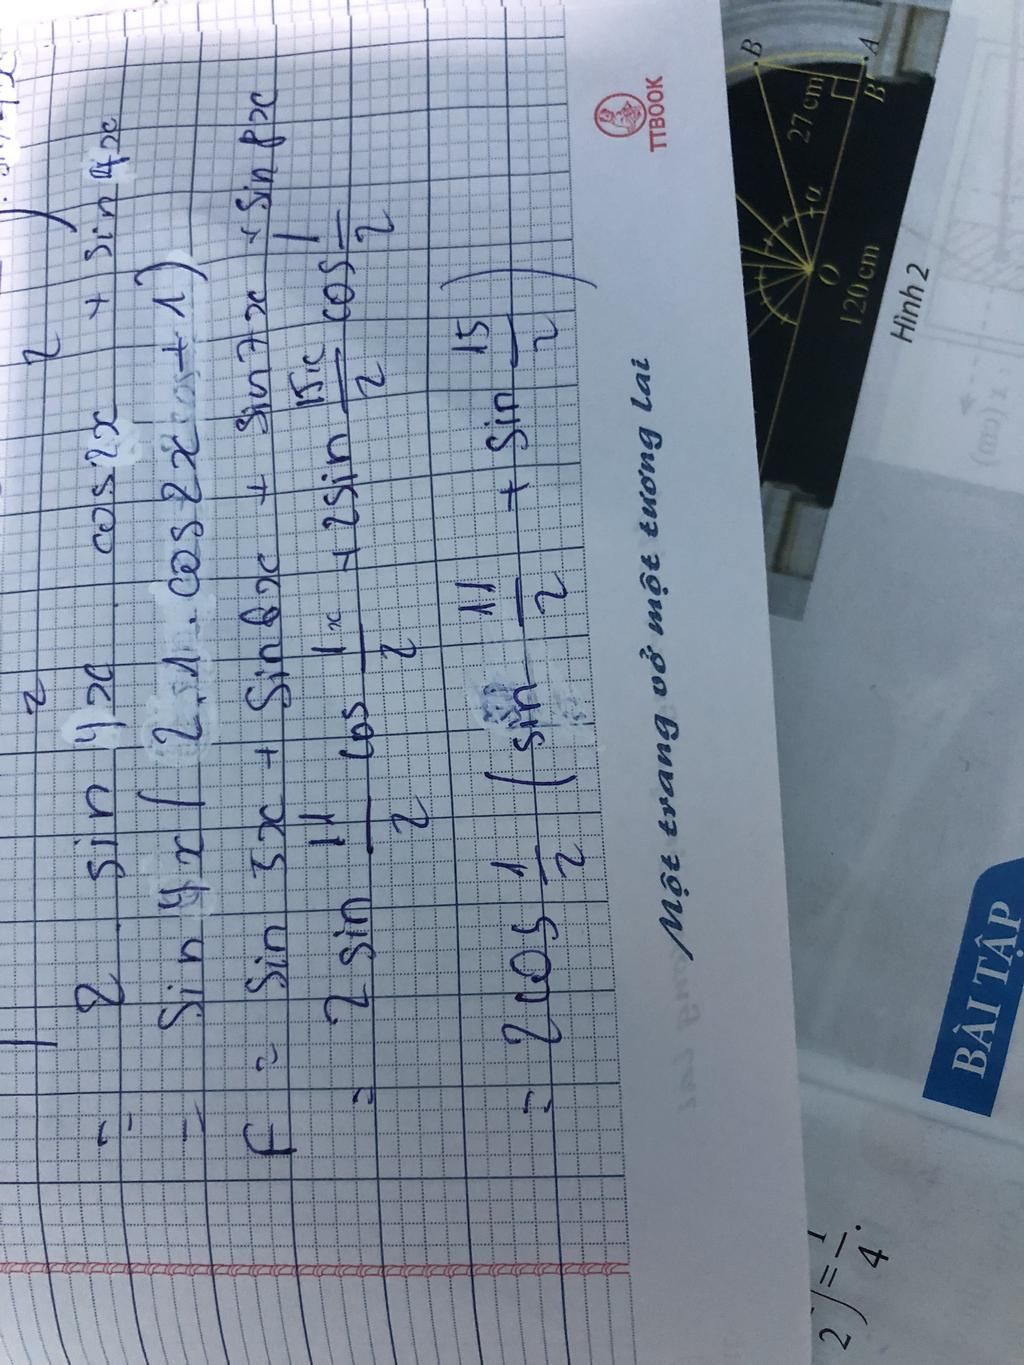 2 2
= 2 sin 4x . cos 2x + sin 4x
= sin 4x ( 2 . 1 . cos 2x + 1 )
F = sin 5x + sin 6x + sin 7x + sin 8x
= 2 sin 11/2 cos 1x/2 + 2 sin 15x/2 cos 1/2
= 2 cos 1/2 ( sin 11/2 + sin 15/2 )
TTBOOK
Một trang vở một tương lai
B
A
B'
27 cm
α
O
120 cm
Hình 2
x (cm)
BÀI TẬP
2) = 1/4.